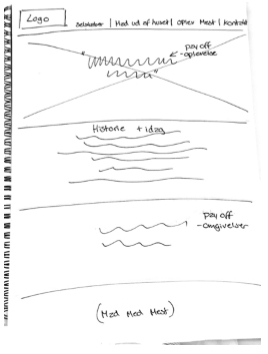 Logo
Selskaber | Mad ud af huset | Oplev Mest | Kontakt
pay off
- oplevelse
Historie + idag
pay off
- omgivelser
(Mad Med Mest)